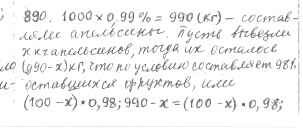 890. 1000 × 0,99 % = 990 (кг) – состав-
ляли апельсины. Пусть вывезли
х кг апельсинов, тогда их осталось
(990-х) кг, что по условию составляет 98%
оставшихся фруктов, или
(100 - х) • 0,98; 990 - х = (100 - х) • 0,98;